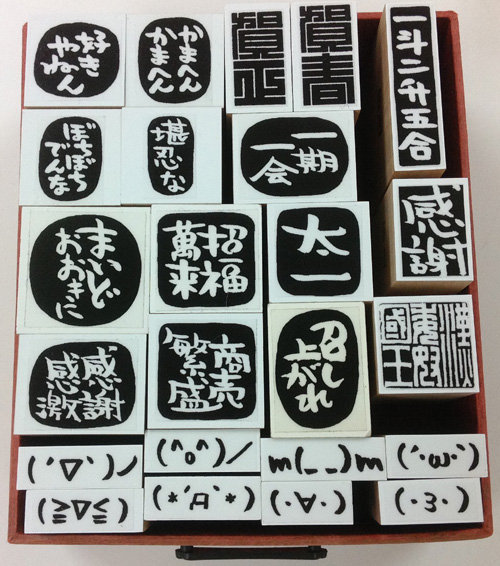 好き
やねん
かまへん
かまへん
賀正
賀春
一斗二升五合
ぼちぼち
でんな
堪忍な
一期
一会
感謝
まいど
おおきに
招福
萬来
太一
漢
委奴
國王
感謝
感激
商売
繁盛
召し
上がれ
(´∇`)ノ
(^o^)／
m(_ _)m
(´·ω·`)
(≧∇≦)
(*´Д`*)
(·∀·)
(·3·)